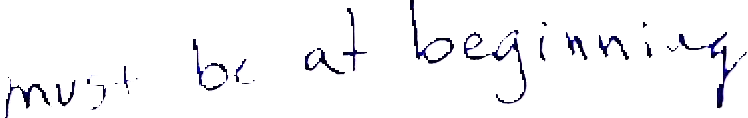 must be at beginning